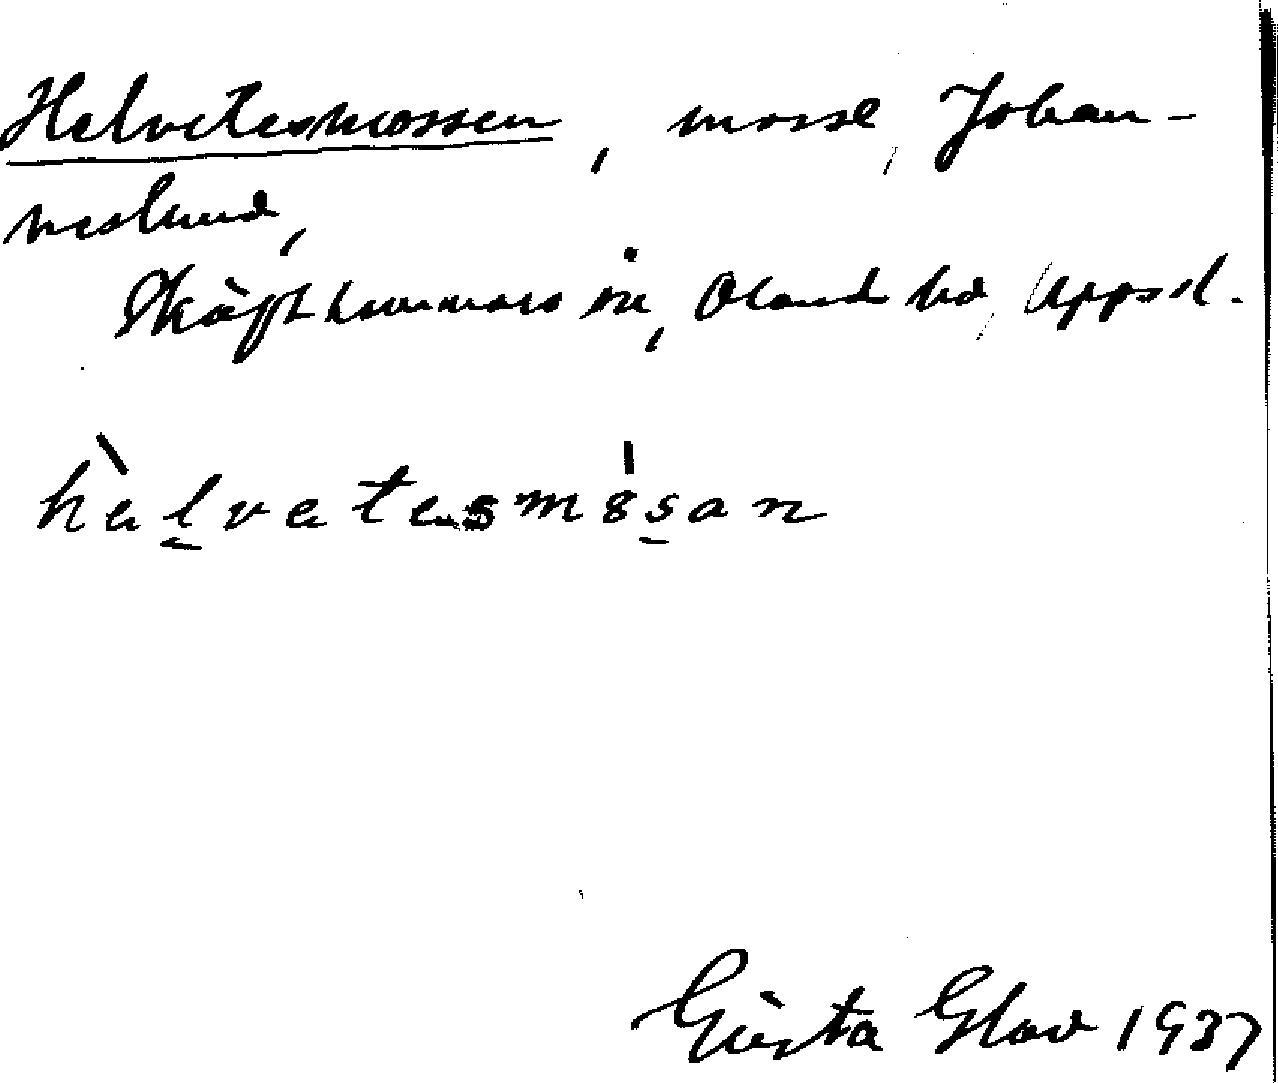 Helvetesmossen, mosse, Johan-
neslund,
Skäfthammars sn, Olands hd, Uppsl.
hèḻvetesmósan
Gösta Glav 1937